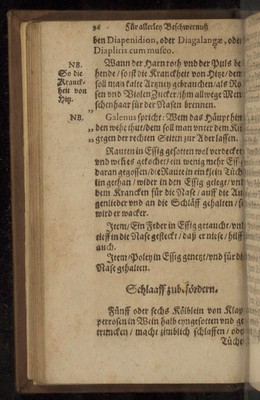 96 Für allerley Beschwernuß
ben Diapenidion, oder Diagalangæ, oder
Diapliris cum musco.
NB. Wann der Harn roth vnd der Puls be
So die hende / so ist die Kranckheit von Hitz / dem
Kranck- soll man kalte Artzney gebrauchen / als Ro
heit von sen vnd Violen Zucker / ihm allwege Men
Hitz. schenhaar für der Nasen brennen.
NB. Galenus spricht: Wem das Häupt hin
„ den wehe thut / dem soll man vnter dem Ki
„ gegen der rechten Seiten zur Ader lassen.
Rauten in Essig gesotten wol verdecket
vnd welches gekochet / ein wenig mehr Ess
daran gegossen / die Raute in ein klein Tüch
lin gethan / wider in den Essig gelegt / vnd
dem Krancken für die Nase / auff die Au
genlieder vnd an die Schläff gehalten / so
wird er wacker.
Item / Ein Feder in Essig getaucht / vnd
tieff in die Nase gesteckt / daß er niese / hilff
auch.
Item / Poley in Essig genetzt / vnd für di
Nase gehalten.
Schlaaff zu b. fördern.
Fünff oder sechs Kölblein von Klap
perrosen in Wein halb eyngesotten vnd ge
truncken / macht zimblich schlaffen / ode
Tüche